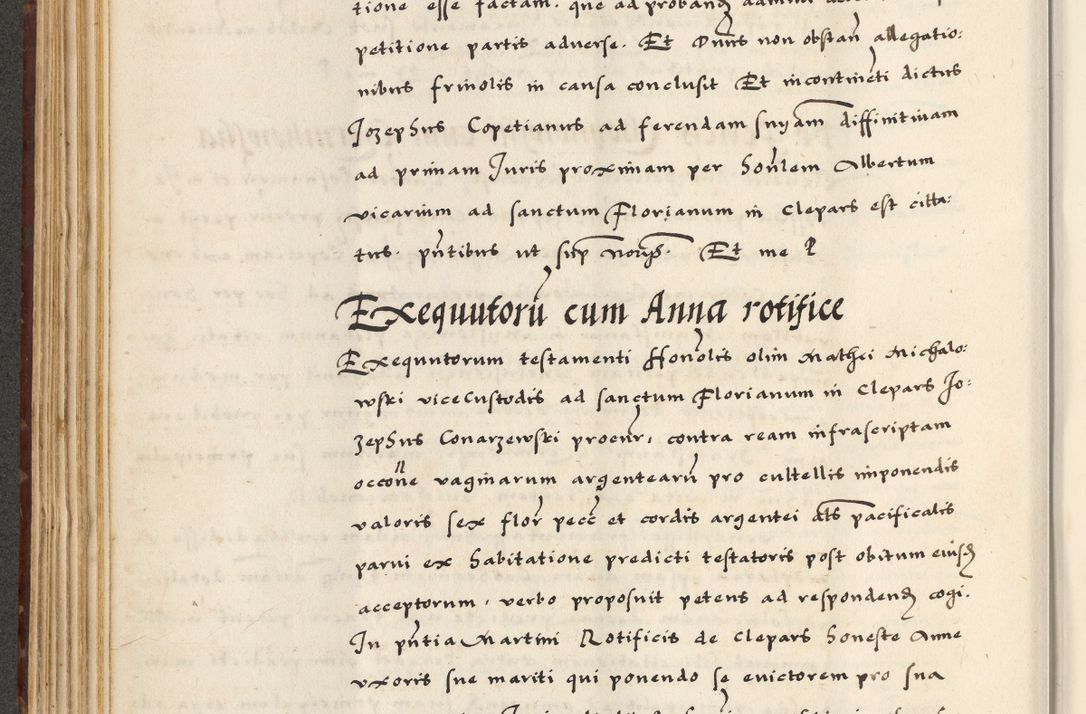 tione esse factam. que ad proband
petitione partis adverse. Et Dnus non obstan allegatio:
nibus frivolis in causa conclusit Et incontineti dictus
Jozephus Copetianus ad ferendam sniam diffinitivam
ad primam Juris proximam per honlem Albertum
vicarium ad sanctum Florianum in Clepars est citta:
tus. pntibus ut sup Et me P
Exequutoru cum Anna rotifice
Exequutorum testamenti Honolis olim Mathei Michalo:
wski viceCustodis ad sanctum Florianum in Clepars Jo:
zephus Conarzewski procur, contra ream infrascriptam
occone vaginarum argentearu pro cultellis imponendis
valoris sex flor pecc et cordis argentei als pacificalis
parvi ex habitatione predicti testatoris post obitum eiusd
acceptorum, verbo proposuit petens ad respondend cogi.
In pntia Martini Rotificis de Clepars honeste Anne
uxoris sue mariti qui ponendo se evictorem pro sua